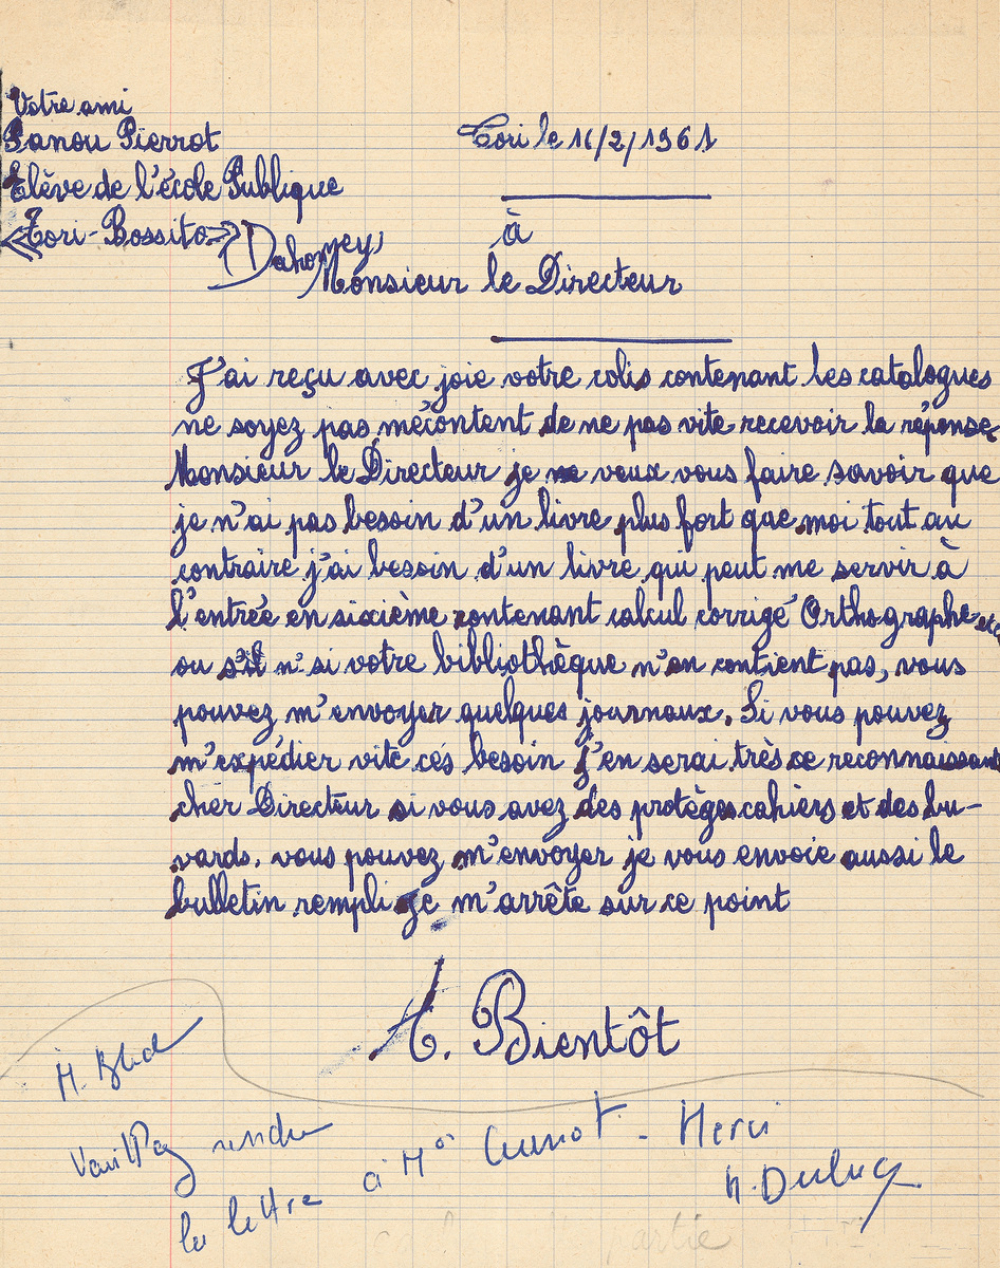 Votre ami
Sanou Pierrot
Elève de l'école Publique
<<Tori-Bossito>>
(Dahomey)
Tori le 16/2/1961
à
Monsieur le Directeur
J'ai reçu avec joie votre colis contenant les catalogues
ne soyez pas mécontent de ne pas vite recevoir la réponse
Monsieur le Directeur je veux vous faire savoir que
je n'ai pas besoin d'un livre plus fort que moi tout au
contraire j'ai besoin d'un livre qui peut me servir à
l'entrée en sixième contenant calcul corrigé Orthographe etc
ou s'il n' si votre bibliothèque n'en contient pas, vous
pouvez m'envoyer quelques journaux. Si vous pouvez
m'expédier vite ces besoin j'en serai très ce reconnaissant
cher Directeur si vous avez des protèges cahiers et des bu-
vards. vous pouvez m'envoyer je vous envoie aussi le
bulletin rempli je m'arrête sur ce point
A. Bientôt
rendre
la lettre à Cunot - Merci